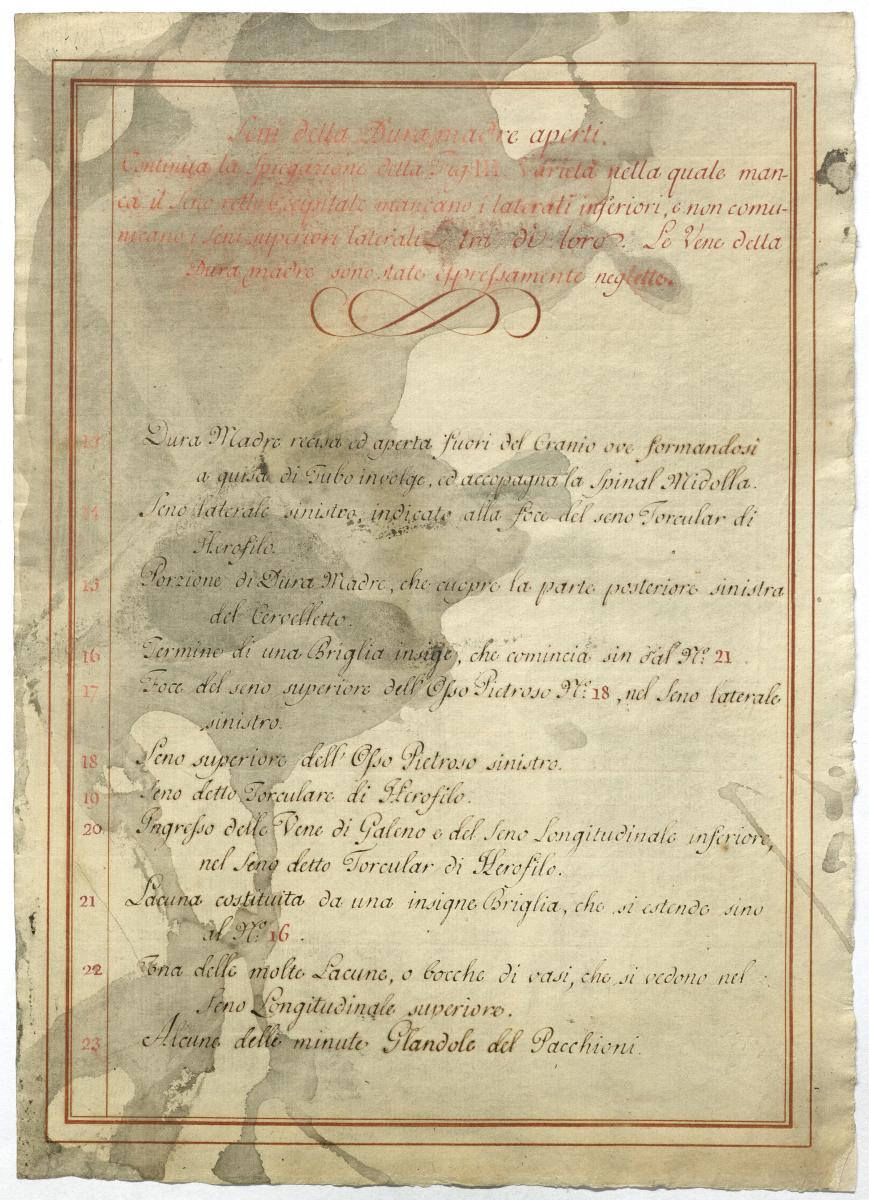 Seni della Dura madre aperti.
Continua la Spiegazione della Fig. III. Varietà nella quale man-
ca il Seno retto Occipitale mancano i laterali inferiori, e non comu-
nicano i Seni superiori laterali tra di loro. Le Vene della
Dura madre sono state espressamente neglette.
13 Dura Madre recisa ed aperta fuori del Cranio ove formandosi
a guisa di Tubo involge, ed accopagna la Spinal Midolla.
14 Seno laterale sinistro, indicato alla foce del seno Torcular di
Herofilo.
15 Porzione di Dura Madre, che cuopre la parte posteriore sinistra
del Cervelletto.
16 Termine di una Briglia insige, che comincia sin dal N.º 21.
17 Foce del seno superiore dell'Osso Pietroso N.º 18, nel Seno laterale
sinistro.
18 Seno superiore dell'Osso Pietroso sinistro.
19 Seno detto Torculare di Herofilo.
20 Ingresso delle Vene di Galeno e del Seno Longitudinale inferiore,
nel Seno detto Torcular di Herofilo.
21 Lacuna costituita da una insigne Briglia, che si estende sino
al N.º 16.
22 Una delle molte Lacune, o bocche di vasi, che si vedono nel
Seno Longitudinale superiore.
23 Alcune delle minute Glandole del Pacchioni.